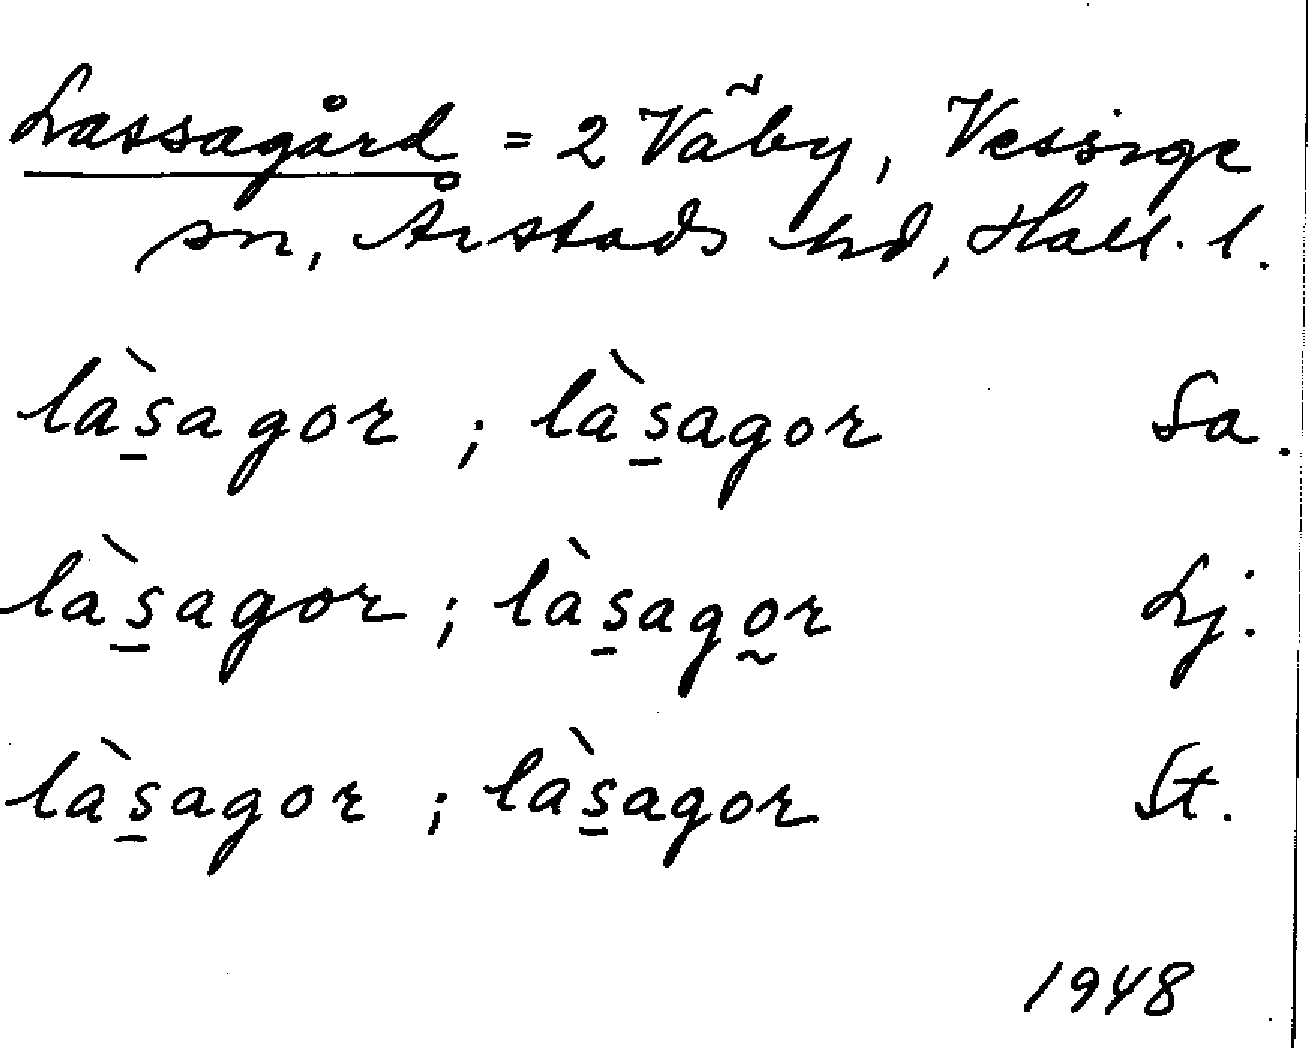 Lassagård = 2 Väby, Vessige
sn, Årstads hd, Hall. l.
là̱sagor ; làs̱agor Sa.
làs̱agor ; làs̱ago̰r Lj.
làs̱agor ; làs̱agor St.
1948